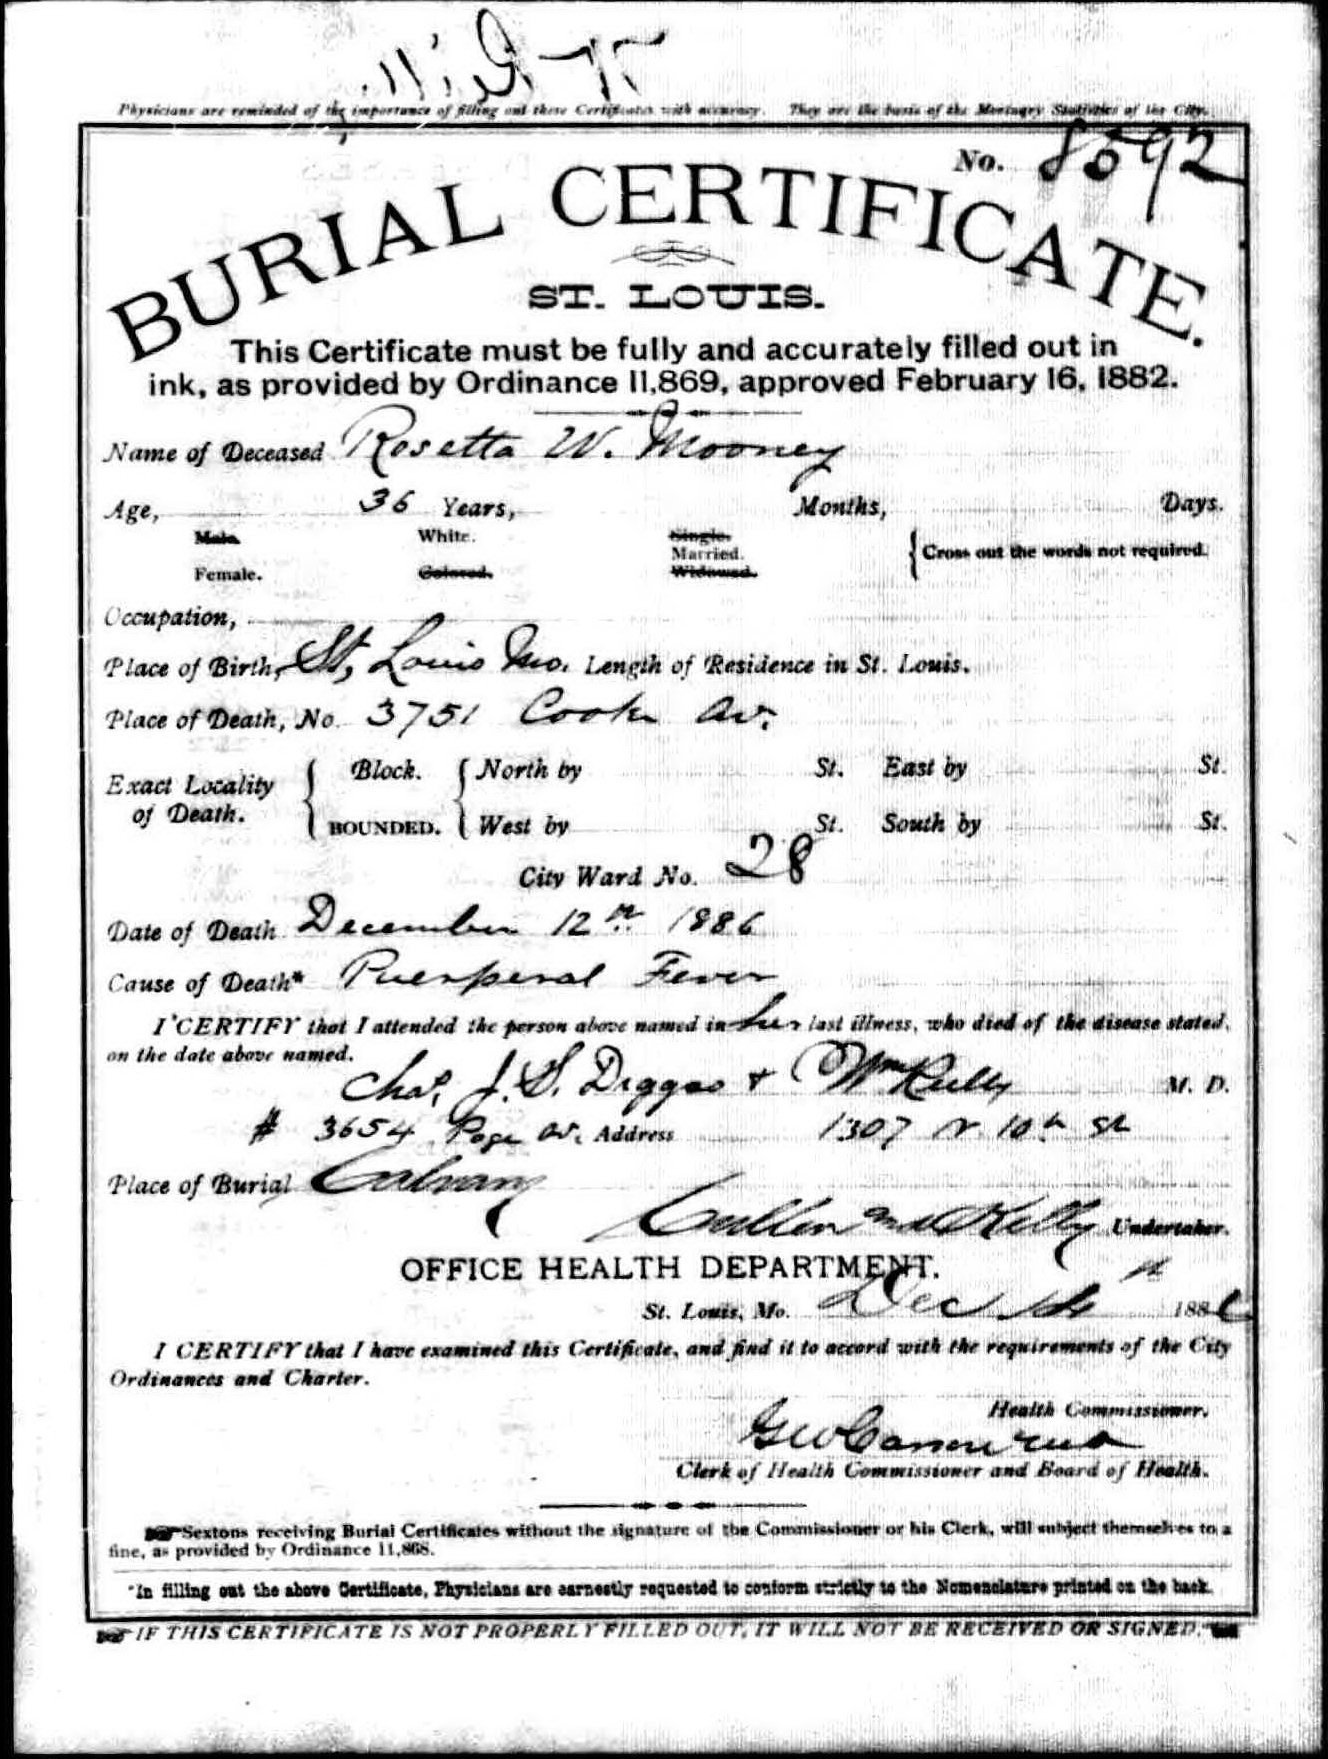 Physicians are reminded of the importance of filling out these Certificates with accuracy. They are the basis of the Mortuary Statistics of the City.
No. 8592
BURIAL CERTIFICATE.
ST. LOUIS.
This Certificate must be fully and accurately filled out in
ink, as provided by Ordinance 11,869, approved February 16, 1882.
Name of Deceased Rosetta W. Mooney
Age, 36 Years, Months, Days.
Male. White. Single.
Married. Cross out the words not required.
Female. Colored. Widowed.
Occupation,
Place of Birth, St, Louis Mo. Length of Residence in St. Louis.
Place of Death, No. 3751 Cook Av.
Exact Locality Block. North by St. East by St.
of Death. BOUNDED. West by St. South by St.
City Ward No. 28
Date of Death December 12th 1886
Cause of Death* Puerperal Fever
I CERTIFY that I attended the person above named in her last illness, who died of the disease stated,
on the date above named.
Chas. J. S. Diggs + Wm Kelly M. D.
# 3654 Page av. Address 1307 N. 10th St
Place of Burial Calvary
Cullen and Kelly Undertaker.
OFFICE HEALTH DEPARTMENT.
St. Louis, Mo. Dec 14th 1886
I CERTIFY that I have examined this Certificate, and find it to accord with the requirements of the City
Ordinances and Charter.
Health Commissioner.
Clerk of Health Commissioner and Board of Health.
Sextons receiving Burial Certificates without the signature of the Commissioner or his Clerk, will subject themselves to a
fine, as provided by Ordinance 11,868.
*In filling out the above Certificate, Physicians are earnestly requested to conform strictly to the Nomenclature printed on the back.
IF THIS CERTIFICATE IS NOT PROPERLY FILLED OUT, IT WILL NOT BE RECEIVED OR SIGNED.